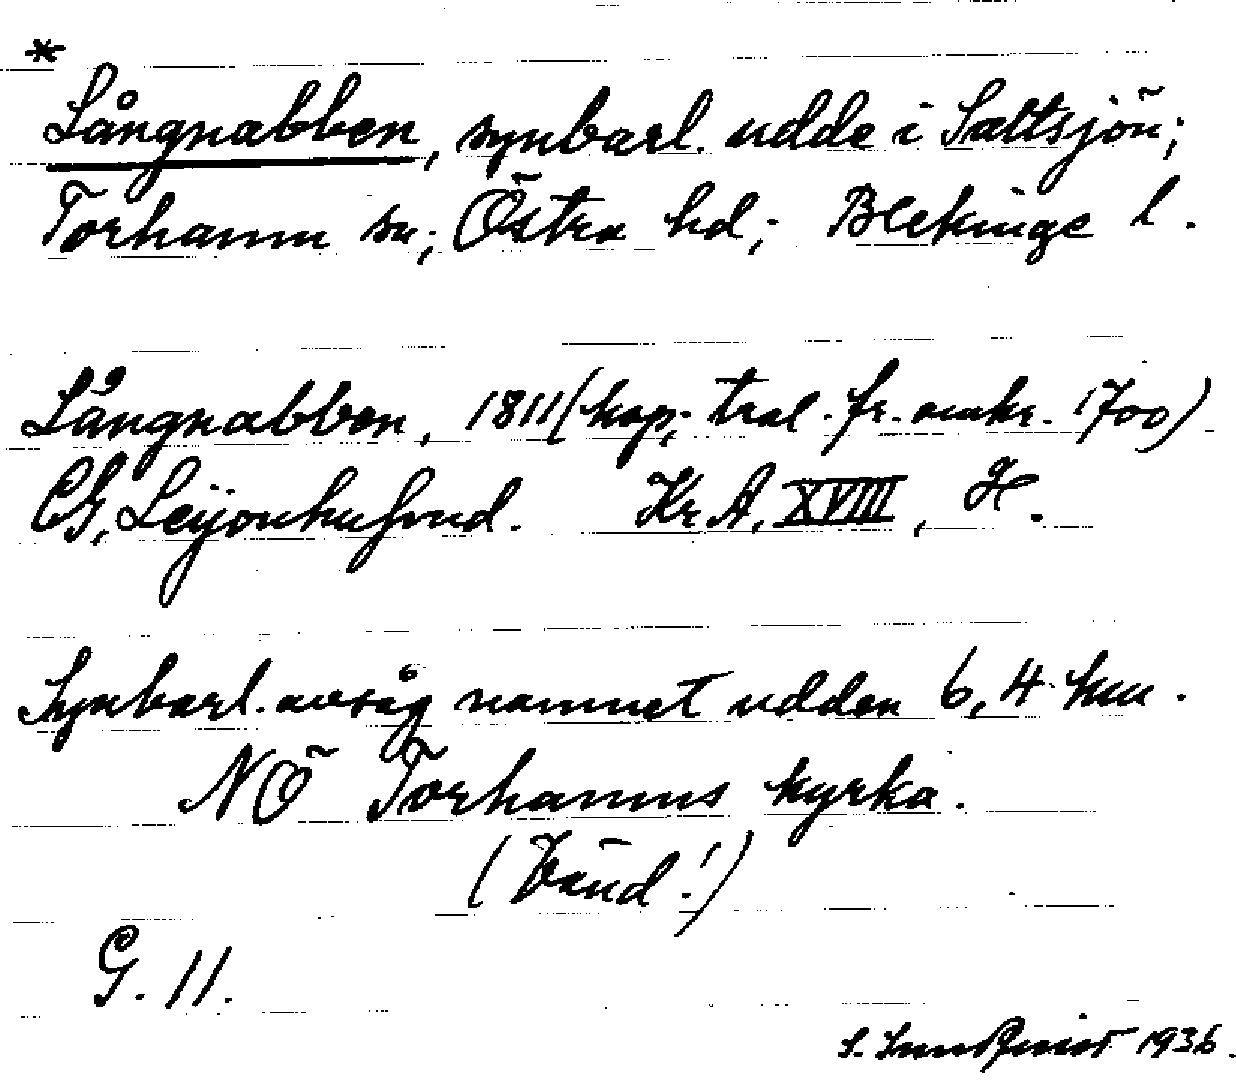 *
Långnabben, synbarl. udde i Saltsjön;
Torhamn sn; Östra hd; Blekinge l.
Långnabben, 1811 (kop; tral. fr. omkr. 1700)
CG, Leijonhufvud. Kr A, XVIII, H.
Synbarl. avsåg namnet udden 6,4 km.
NÖ Torhamns kyrka.
(Vänd!)
G. 11.
S. 1936.